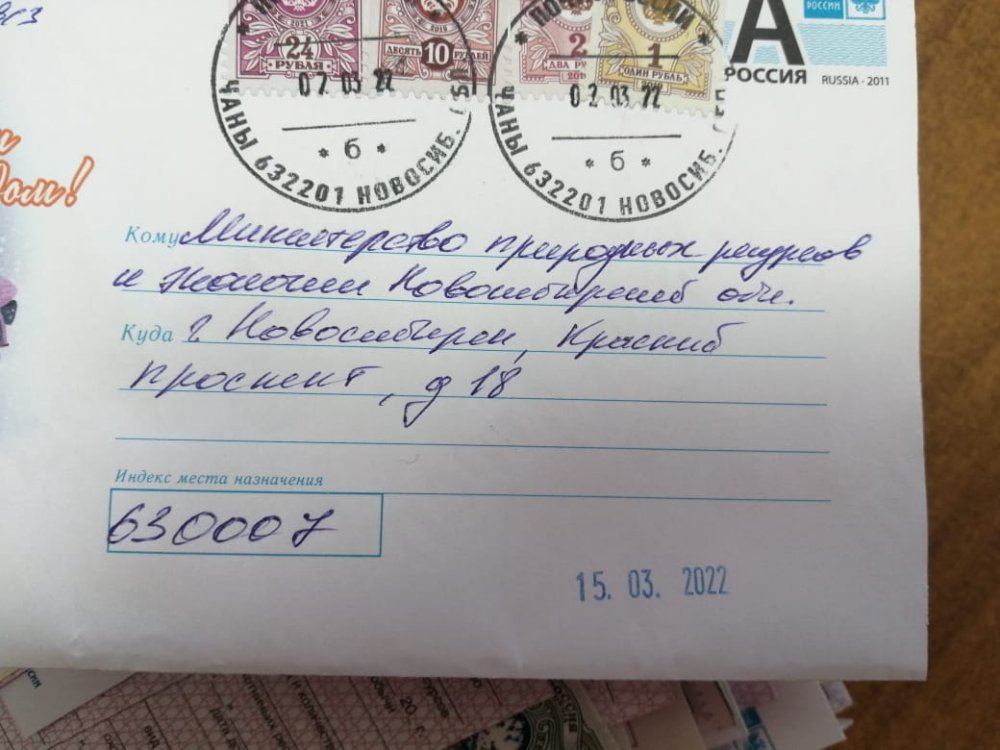 24
РУБЛЯ
2021
ДЕСЯТЬ 10 РУБЛЕЙ
2019
2
ДВА
1
ОДИН РУБЛЬ
А
РОССИЯ
РОССИИ
RUSSIA · 2011
02 03 22
* б *
ЧАНЫ 632201 НОВОСИБ.
02 03 22
* б *
ЧАНЫ 632201 НОВОСИБ.
Кому Министерство природных ресурсов
и экологии Новосибирской обл.
Куда г. Новосибирск, Красный
проспект, д 18
Индекс места назначения
630007
15. 03. 2022